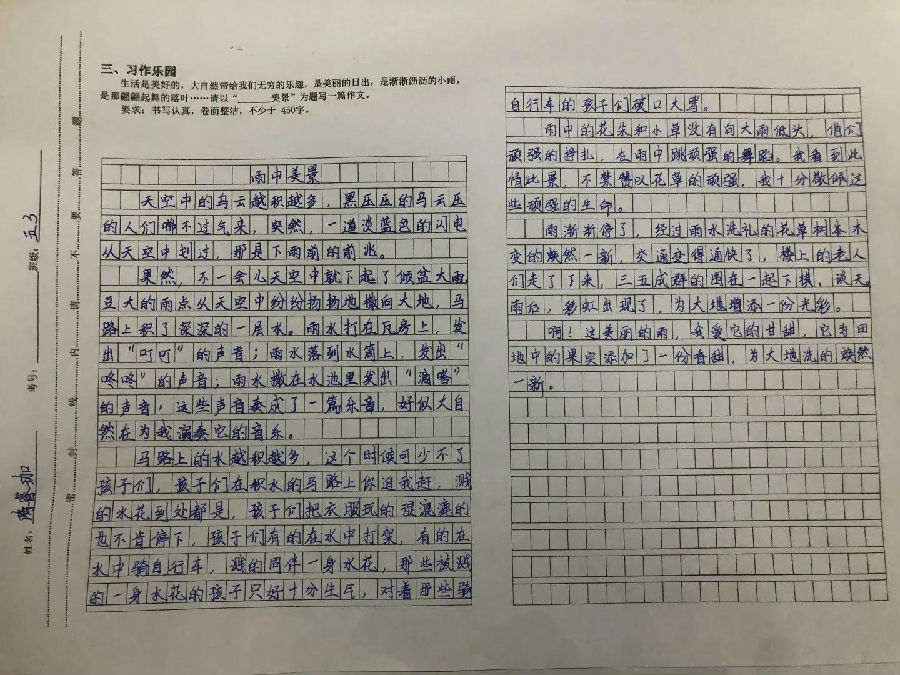 三、习作乐园
生活是美好的，大自然带给我们无穷的乐趣，是美丽的日出，是淅淅沥沥的小雨，
是那翩翩起舞的落叶……请以“______美景”为题写一篇作文。
要求：书写认真，卷面整洁，不少于 450字。
雨中美景
天空中的乌云越积越多，黑压压的乌云压
的人们喘不过气来，突然，一道淡蓝色的闪电
从天空中划过，那是下雨前的前兆。
果然，不一会儿天空中就下起了倾盆大雨，
豆大的雨点从天空中纷纷扬扬地撒向大地，马
路上积了深深的一层水。雨水打在瓦房上，发
出“叮叮”的声音；雨水落到水筒上，发出“
咚咚”的声音；雨水撒在水池里发出“滴嗒”
的声音，这些声音奏成了一篇乐音，好似大自
然在为我演奏它的音乐。
马路上的水越积越多，这个时候可少不了
孩子们，孩子们在积水的马路上你追我赶，溅
的水花到处都是，孩子们把衣服玩的湿漉漉的
也不肯停下，孩子们有的在水中打架，有的在
水中骑自行车，溅的同伴一身水花，那些被溅
的一身水花的孩子只好十分生气，对着那些骑
自行车的孩子们破口大骂。
雨中的花朵和小草没有向大雨低头，他们
顽强的挣扎，在雨中跳顽强的舞蹈。我看到此
情此景，不禁赞叹花草的顽强，我十分敬佩这
些顽强的生命。
雨渐渐停了，经过雨水洗礼的花草树本木
变的焕然一新，交通变得通快了，楼上的老人
们走了下来，三五成群的围在一起下棋，谈天。
雨后，彩虹出现了，为大地增添一份光彩。
啊！这美丽的雨，我爱它的甘甜，它为田
地中的果实添加了一份香甜，为大地洗的焕然
一新。
班级：五3
考号：
姓名：
密 封 线 内 请 不 要 答 题